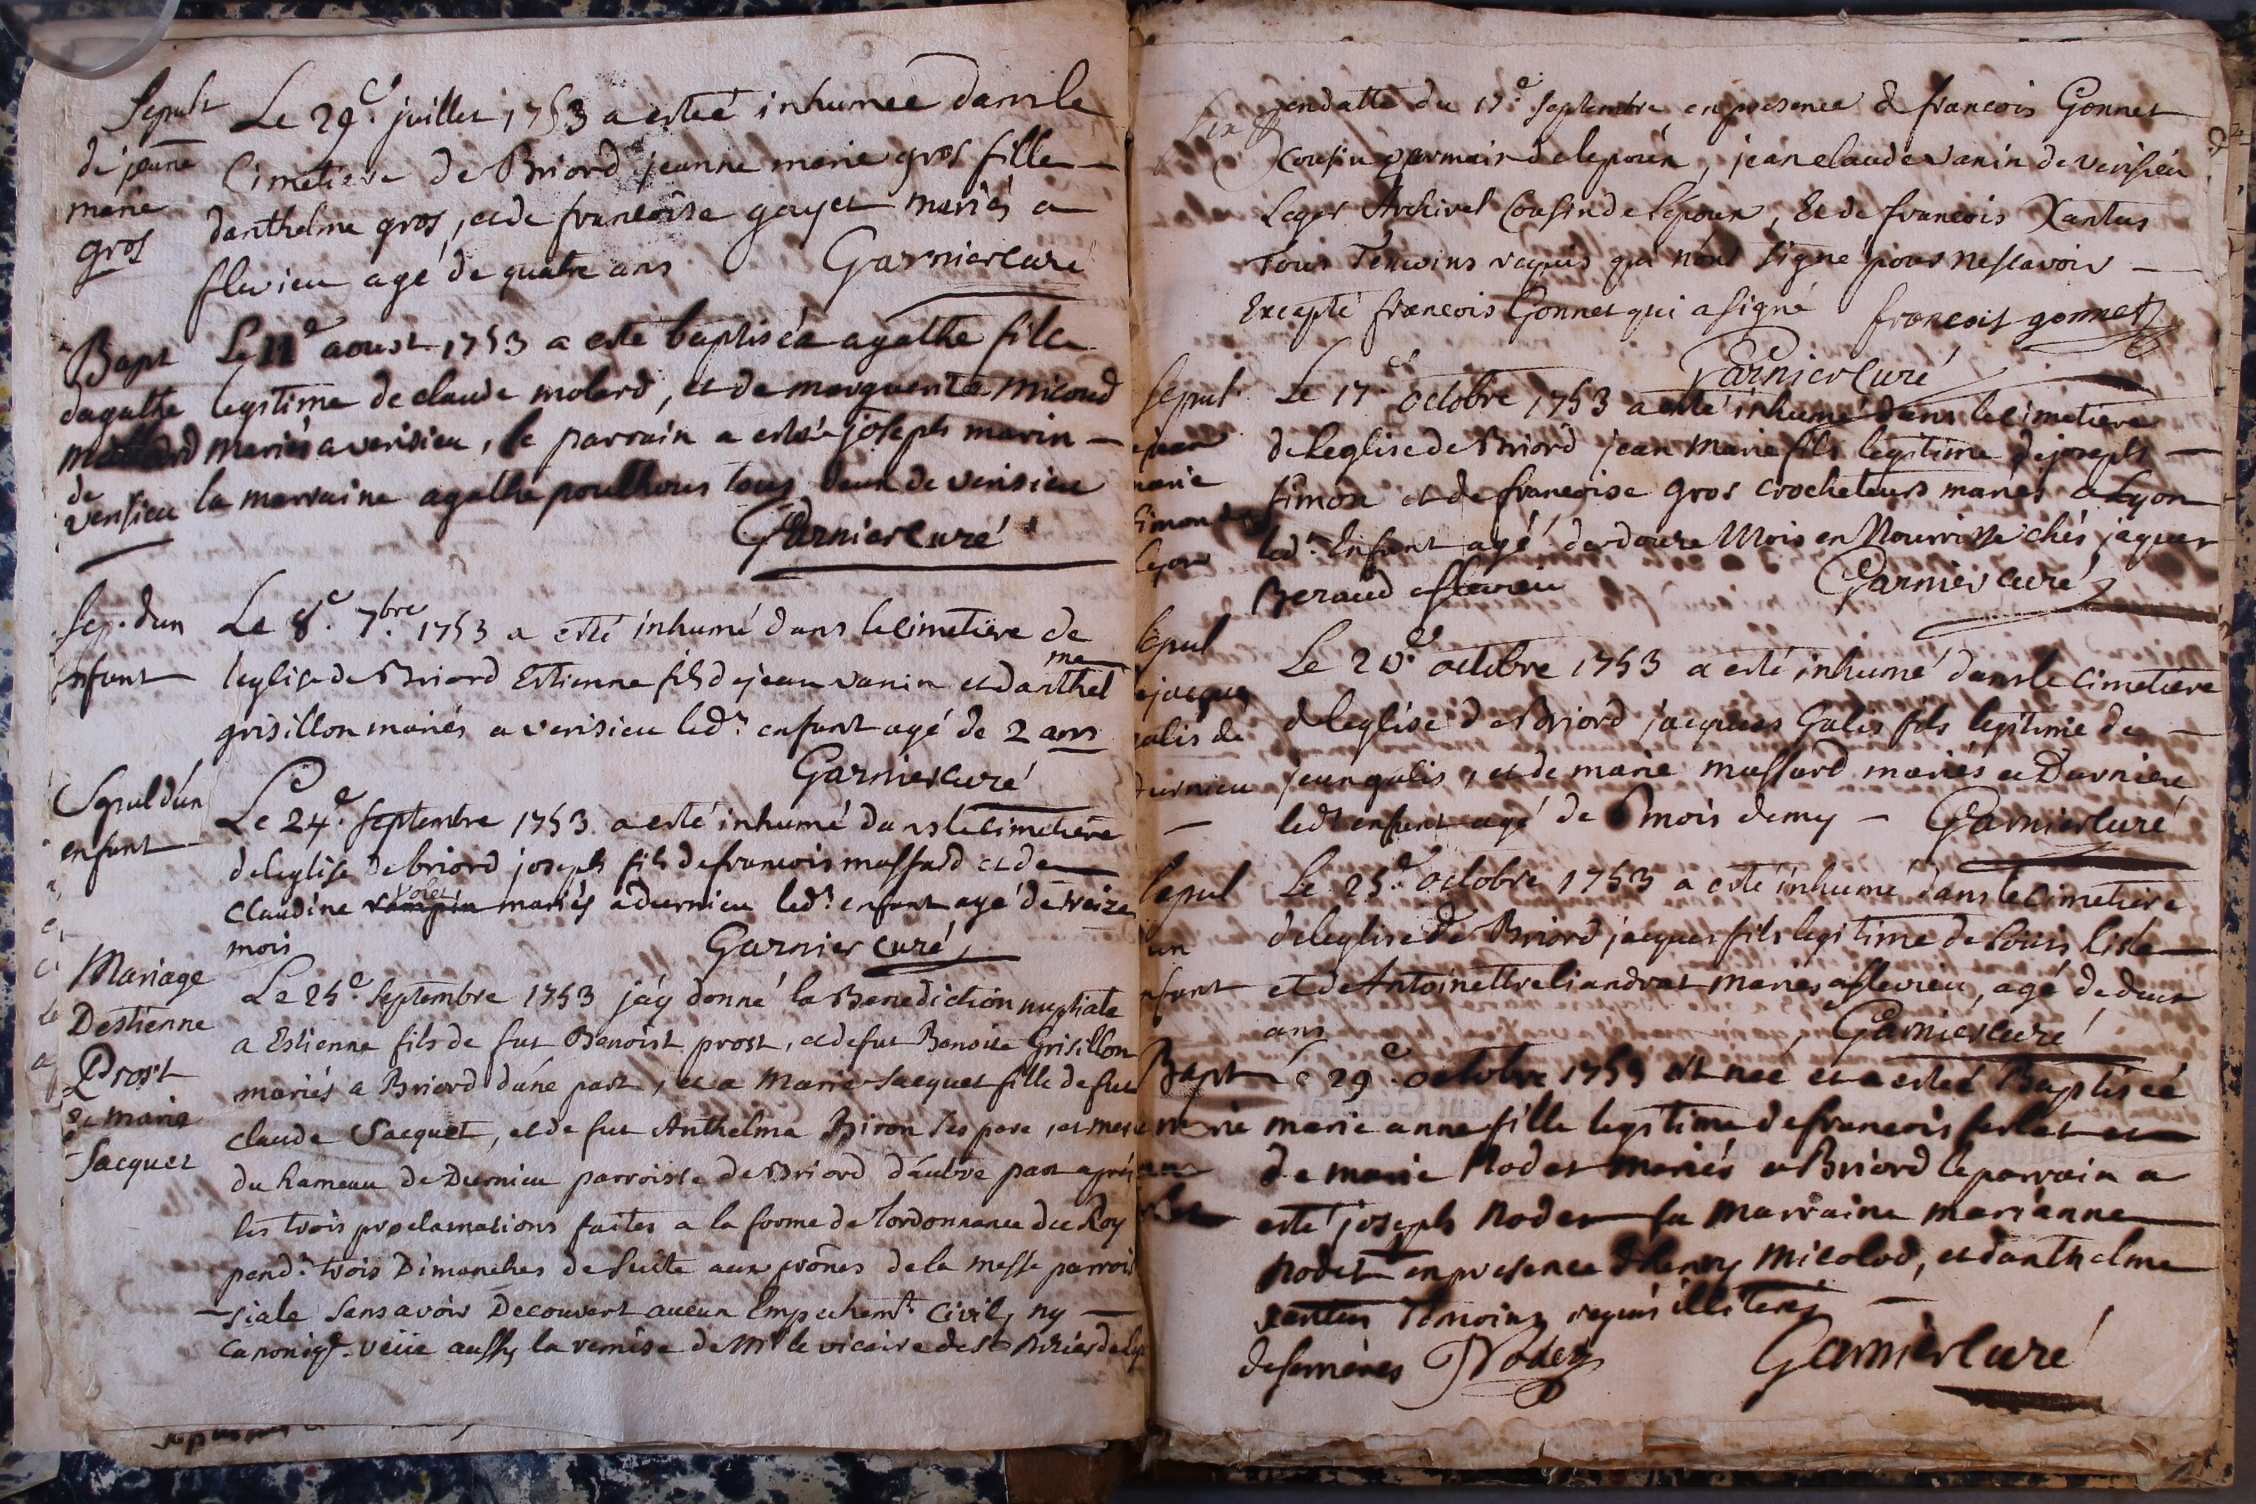 Sepult
de jeanne
marie
gros
Le 29e. juillet 1753 a esteé inhumee dans le
Cimetiere de Briord jeanne marie gros fille
danthelme gros, et de francoise gayet mariés a
flevieu agé de quatre ans Garnier curé
Bapt
dagathe
mollard
de
verisieu
Le 11e aoust 1753 a esté baptiséa agathe fille
legitime de claude molard, et de marguerite micoud
mariés a verisieu, le parrain a estée joseph marin
la marraine agathe poulthous tous deux de verisieu
Garnier Curé
Sep. dun
enfant
Le 8e. 7bre. 1753 a esté inhumé dans le cimetiere de
leglise de Briord Estienne fils de jean vanin et danthel
me
grisillon mariés a verisieu led.t enfant agé de 2 ans
Garnier curé
Sepul dún
enfant
Le 24e. septembre 1753 a esté inhumé dans le cimetiere
de leglise de briord joseph fils de francois massard et de
claudine mariés a durnieu led.t enfant agé de treize
mois Garnier curé
Mariage
Destienne
Prost
Et marie
Sacquet
Le 25e. septembre 1753 j'áy donné la Benediction nuptiale
a Estienne fils de fut Benoist prost, et de fut Benoite Grisillon
mariés a Briord dúne part, et a Marie Sacquet fille de fut
claude Sacquet, et de fut Anthelma Biron ses pere et mere
du hameau de Durnieu parroisse de Briord dáutre part aprés
les trois proclamations faites a la forme de lordonnance du Roy
pend.t trois Dimanches de suite aux prônes de la messe parrois
siale sans avoir decouvert aucun Empechemt. Civil, ny
canoniq. veüe aussy la remise de Mr le vicaire de st
en datte du 17e. septembre en presence de francois Gonnet
Cousin germain de lepouse, jean claude vanin de verisieu
Leger Archirel Cousin de lépoux, Et de francois Xantus
Tous Temoins requis qui nónt signé pour ne scavoir
Excepté francois Gonnet qui a signé francois gonnet
Garnier Curé
Sepul
jean
marie
Simon de
Lyon
Le 17e. octobre 1753 a esté inhumé dans le cimetiere
de leglise de Briord jean marie fils legitime de joseph
Simon et de francoise Gros crocheteurs mariés a Lyon
led.t Enfant agé de douze Mois en Nourrisse chés jaques
Beraud a flevieu Garnier curé
Sepul
jacques
galis de
durnieu
Le 20e. octobre 1753 a esté inhumé dans le cimetiere
de leglise de Briord jacques Galis fils legitime de
jean galis, et de marie massard mariés a Durnieu
led.t enfant agé de 6 mois demy Garnier curé
Sepul
un
nfant
Le 25e. octobre 1753 a esté inhumé dans le cimetiere
de leglise de Briord jacques fils legitime de Louis Lisle
et de Antoinette liandrat mariés a flevieu, agé de deux
ans Garnier curé
Bapt
Le 29e. octobre 1753 est nee et a esteé Baptiséé
marie anne fille legitime de francois ferlet et
de marie Nodet mariés a Briord le parrain a
esté joseph Nodet la marraine mariánne
Nodet en presence dhenry Micolod, et danthelme
xantus Témoins requis illiterés
desserrieres Nodet Garnier Curé